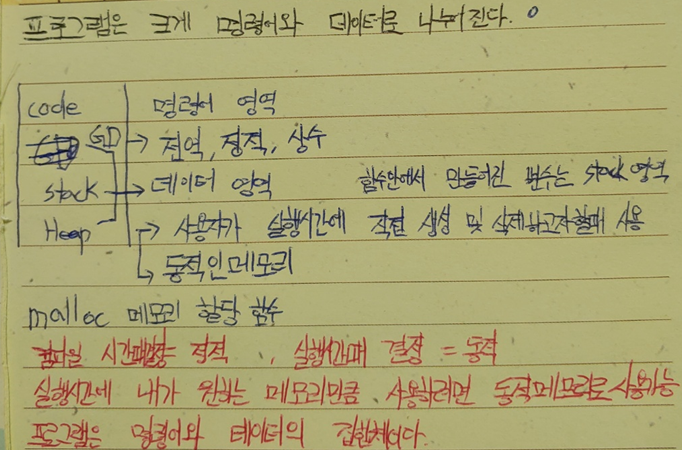 프로그램은 크게 명령어와 데이터로 나누어진다.
code 명령어 영역
GD → 전역, 정적, 상수
stack → 데이터 영역 함수안에서 만들어진 변수는 stack 영역
Heap → 사용자가 실행시간에 직접 생성 및 삭제하고자할때 사용
→ 동적인메모리
malloc 메모리 할당 함수
컴파일 시간때 정적, 실행시간때 결정 = 동적
실행시간에 내가 원하는 메모리만큼 사용하려면 동적메모리로 사용가능
프로그램은 명령어와 데이터의 집합체이다.